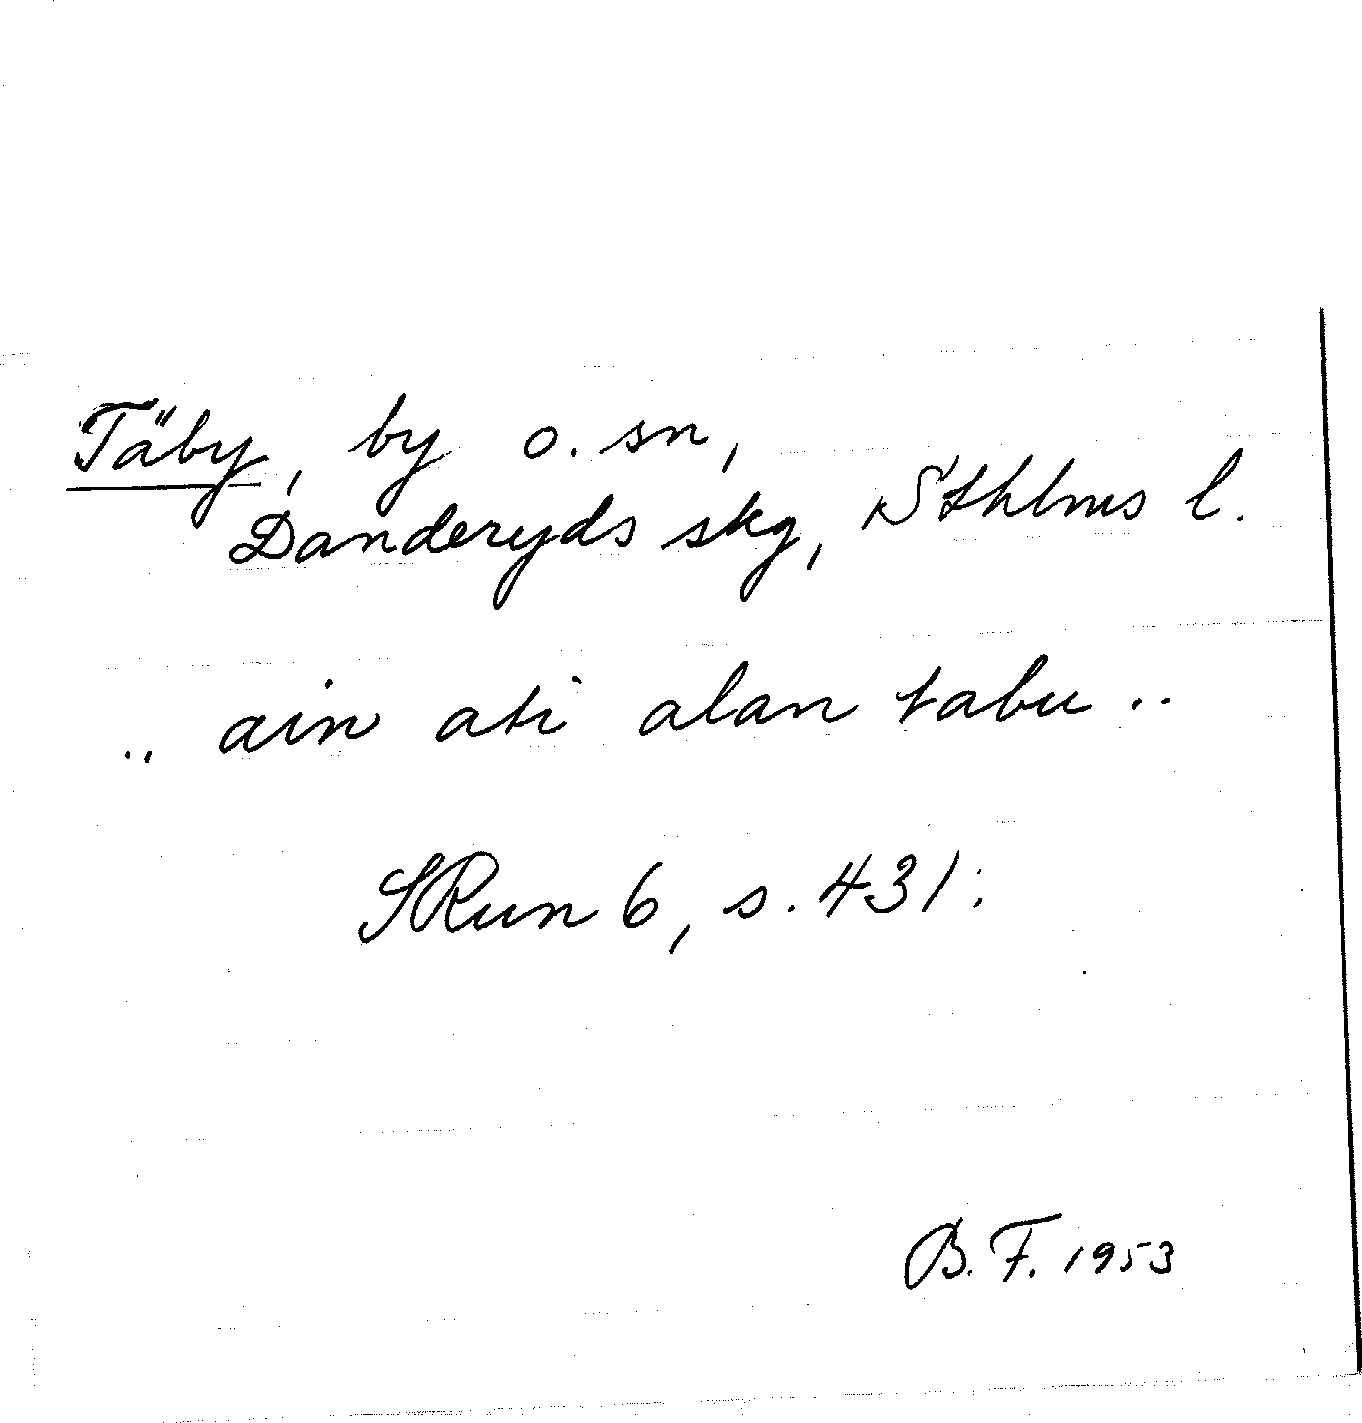 Täby, by o. sn,
Danderyds skg, Sthlms l.
.. ain ati alan tabu ..
SRun 6, s. 431.
B. F. 1953